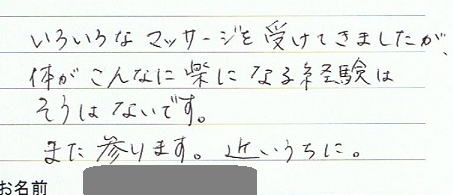 いろいろなマッサージを受けてきましたが、
体がこんなに楽になる経験は
そうはないです。
また参ります。近いうちに。
お名前